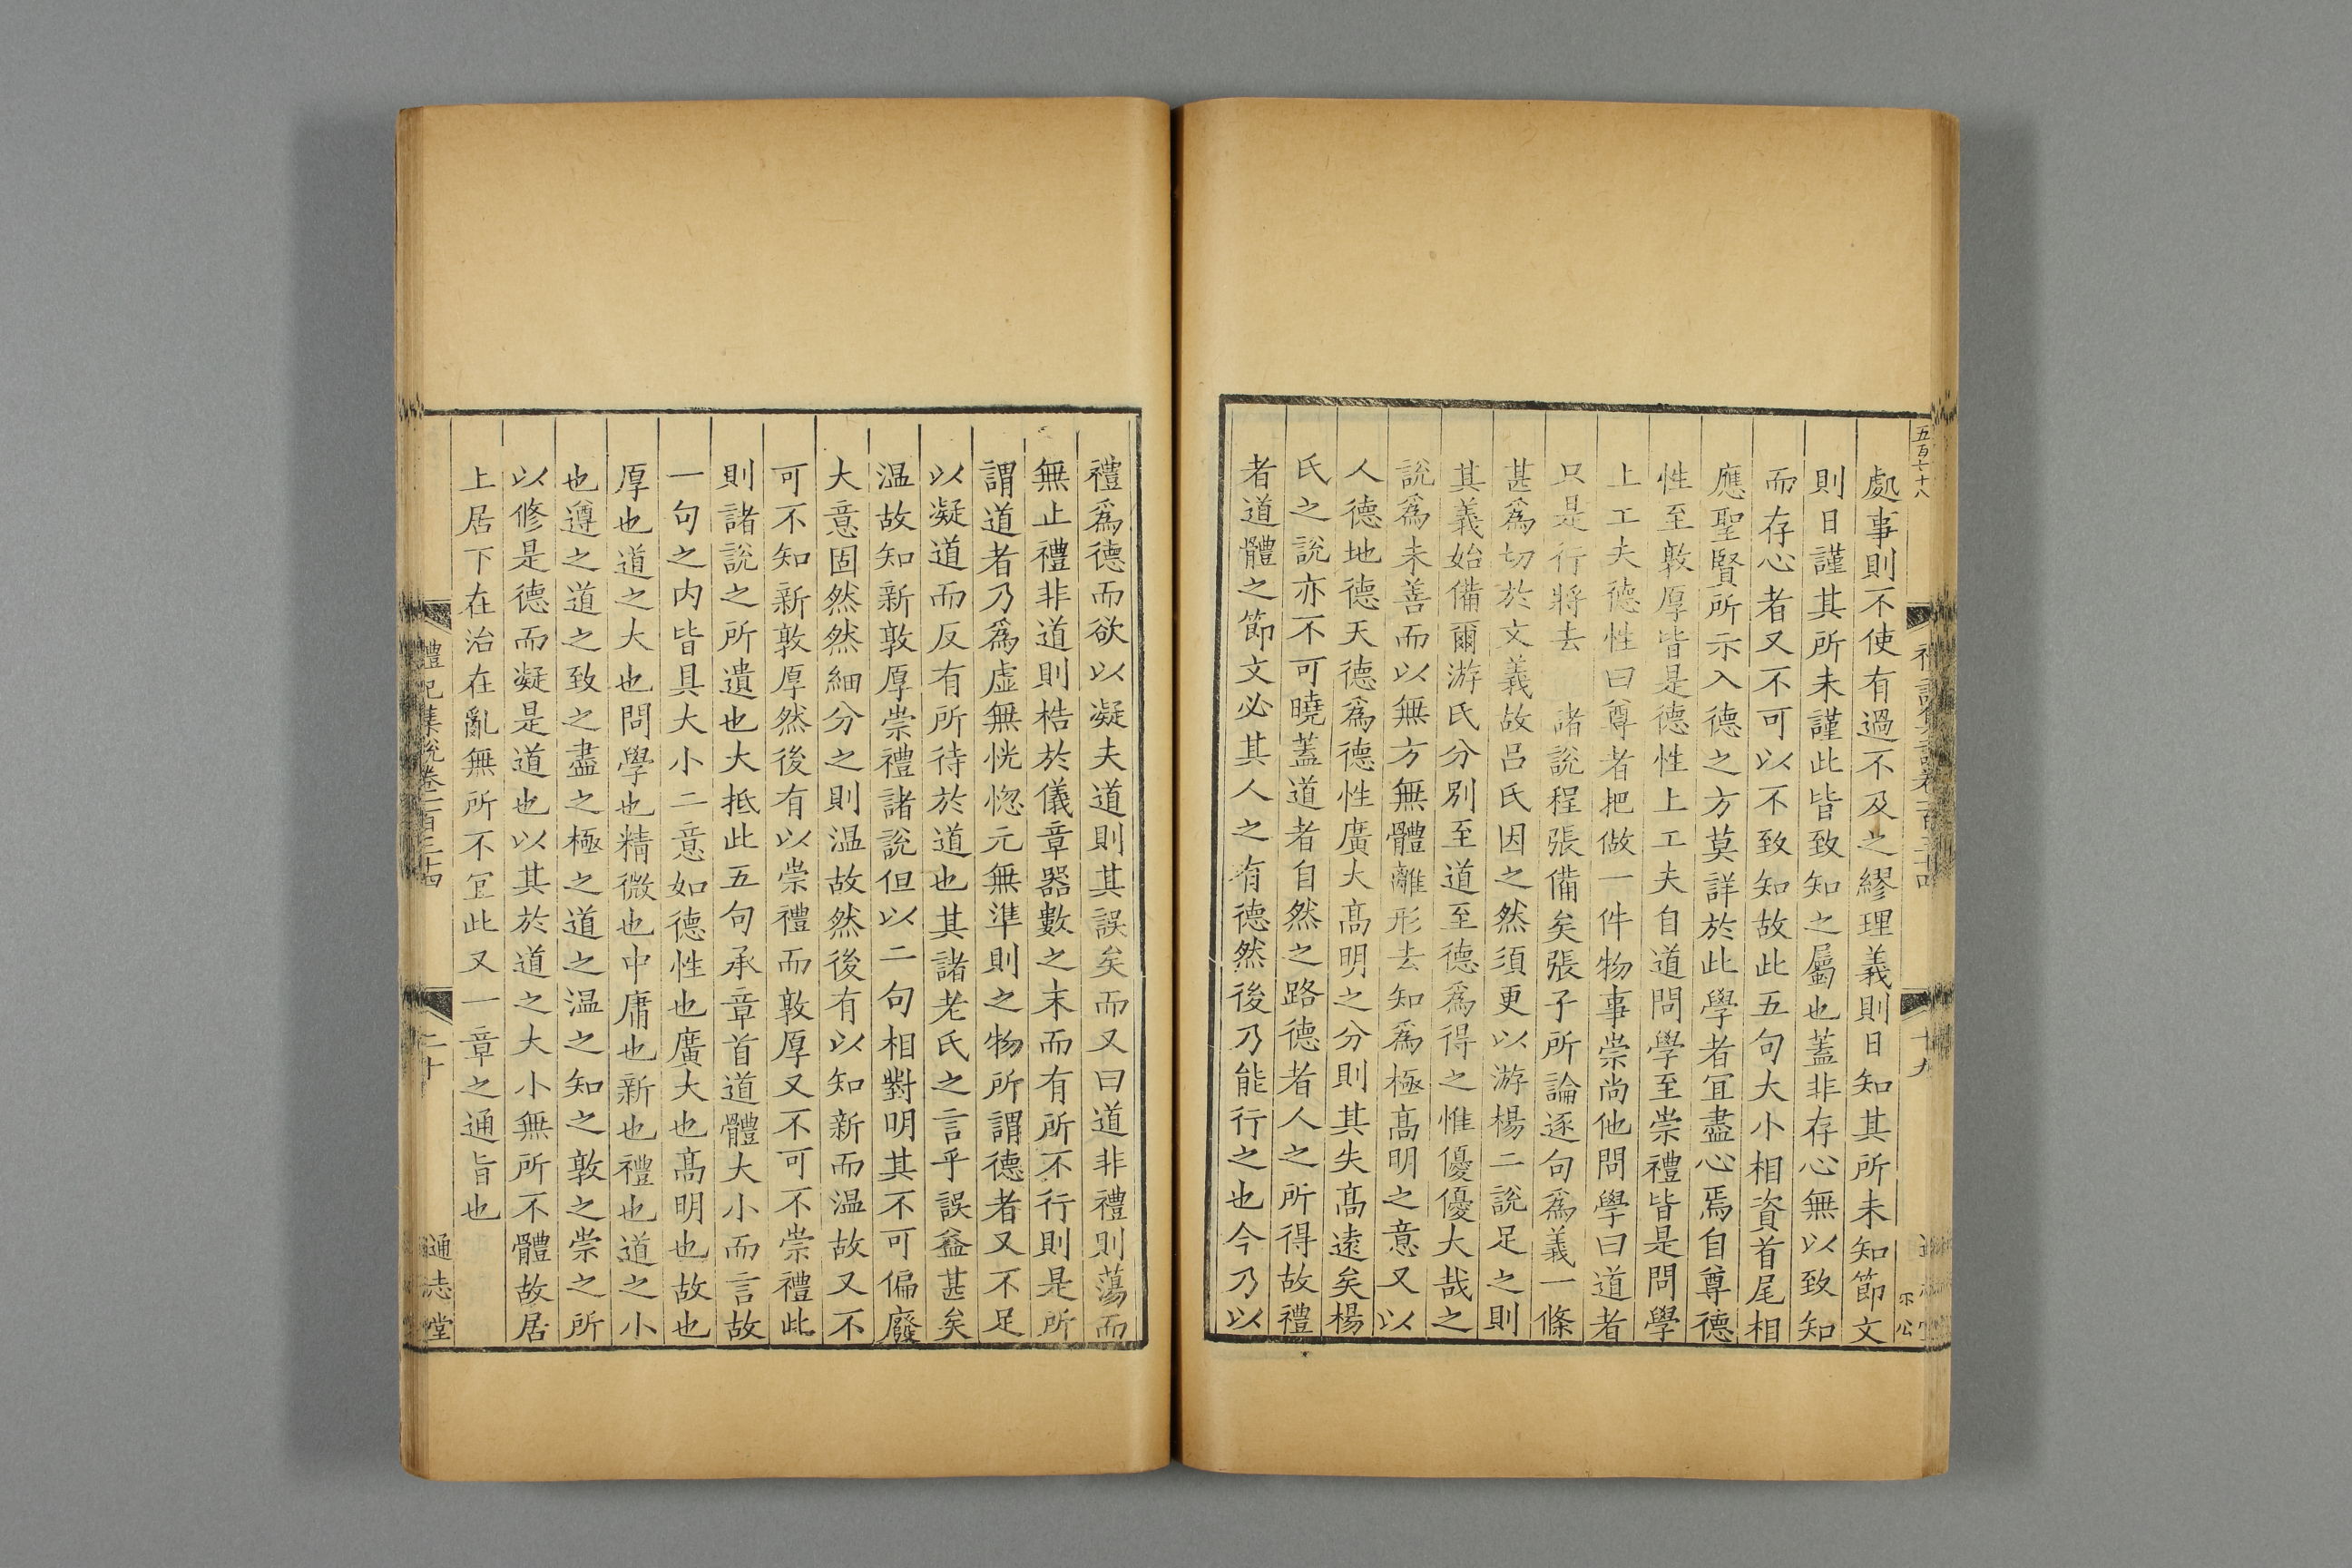 五百七十八
處事則不使有過不及之繆理義則日知其所未知節文
則日謹其所未謹此皆致知之屬也蓋非存心無以致知
而存心者又不可以不致知故此五句大小相資首尾相
應聖賢所示入德之方莫詳於此學者宜盡心焉自尊德
性至敦厚皆是德性上工夫自道問學至崇禮皆是問學
上工夫德性曰尊者把做一件物事崇尚他問學曰道者
只是行將去　諸說程張備矣張子所論逐句爲義一條
甚爲切於文義故呂氏因之然須更以游楊二說足之則
其義始備爾游氏分別至道至德爲得之惟優優大哉之
說爲未善而以無方無體離形去知爲極髙明之意又以
人德地德天德爲德性廣大髙明之分則其失髙遠矣楊
氏之說亦不可曉蓋道者自然之路德者人之所得故禮
者道體之節文必其人之有德然後乃能行之也今乃以
十九
禮爲德而欲以凝夫道則其誤矣而又曰道非禮則蕩而
無止禮非道則梏於儀章器數之末而有所不行則是所
謂道者乃爲虛無恍惚元無準則之物所謂德者又不足
以凝道而反有所待於道也其諸老氏之言乎誤益甚矣
温故知新敦厚崇禮諸說但以二句相對明其不可偏廢
大意固然然細分之則温故然後有以知新而温故又不
可不知新敦厚然後有以崇禮而敦厚又不可不崇禮此
則諸說之所遺也大抵此五句承章首道體大小而言故
一句之内皆具大小二意如德性也廣大也髙明也故也
厚也道之大也問學也精微也中庸也新也禮也道之小
也遵之道之致之盡之極之道之温之知之敦之崇之所
以修是德而凝是道也以其於道之大小無所不體故居
上居下在治在亂無所不宜此又一章之通旨也
禮記集說卷一百三十四
二十
通志堂